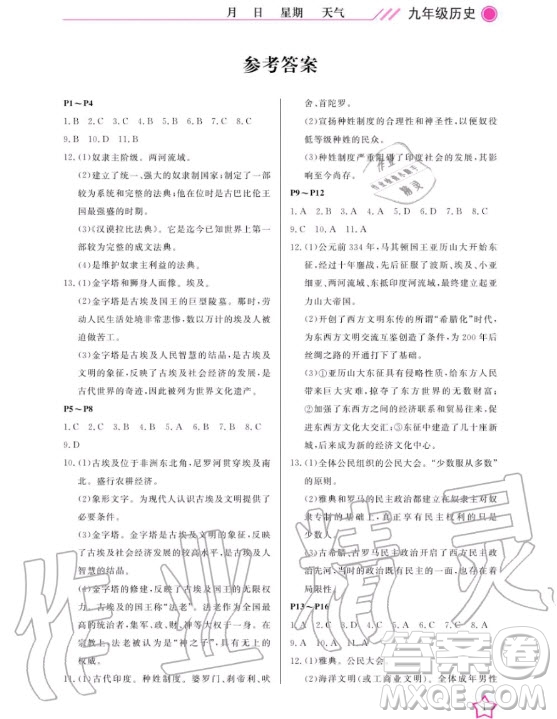 月 日 星期 天气
九年级历史
参考答案
P1～P4
1. B 2. C 3. C 4. C 5. C 6. B 7. A 8. C
9. B 10. D 11. B
12. (1)奴隶主阶级。两河流域。
(2)建立了统一、强大的奴隶制国家；制定了一部
较为系统和完整的法典；他的统治时期是古巴比伦王
国最强盛的时期。
(3)《汉谟拉比法典》。它是迄今已知世界上第一
部较为完整的成文法典。
(4)是维护奴隶主利益的法典。
13. (1)金字塔和狮身人面像。埃及。
(2)金字塔是古埃及国王的巨型陵墓。那时候，劳
动人民生活处境非常悲惨，数以万计的埃及人被迫
做苦工。
(3)金字塔是古埃及人民智慧的结晶，是古埃及文
明的象征，反映了古埃及社会经济的发展，是
古代世界的奇迹，因此被列为世界文化遗产。
P5～P8
1. C 2. C 3. C 4. B 5. D 6. B 7. B 8. C
9. D
10. (1)古埃及位于非洲东北角，尼罗河贯穿埃及南
北。盛行农耕经济。
(2)象形文字。为现代人认识古埃及提供了
文献资料。
(3)金字塔。金字塔是古埃及文明的象征，反映了
古埃及社会经济发展的较高水平，是古埃及人民智
慧的结晶。
(4)金字塔的修建，反映了古埃及国王的无限权
力。古埃及的国王称为“法老”。法老作为全国的最
高统治者，集军、政、财、神等大权于一身。在
宗教上，法老被认为是“神之子”。
11. (1)古代印度。种姓制度。婆罗门、刹帝利、吠
舍、首陀罗。
(2)宣扬种姓制度的合理性和神圣性，以便奴役
低等级种姓的民众。
(3)种姓制度严重阻碍了印度社会的发展。
天尚存。
P9～P12
1. A 2. B 3. D 4. A 5. A 6. B 7. A 8. A
9. C 10. A 11. A
12. (1)公元前 334 年，马其顿国王亚历山大开始东
征，经过十年鏖战，先后征服了波斯、埃及、小亚
细亚、两河流域、东抵印度河流域，建立起亚历
山力大帝国。
(2)开创了西方文明东传的所谓“希腊化”时代，
为东西方文明交流互鉴创造了条件，为 200 年后
丝绸之路的开通打下了基础。
(3)①亚历山大东征具有侵略性质，给东方人民带
来巨大灾难，掠夺了东方世界的无数财富。
②打开了东西方之间的经济联系和贸易往来，促
进东西方文化大交汇；③东征中建造了几十座新
城，成为新的经济文化中心。
13. (1)全体公民组织的公民大会。“少数服从多数”
的原则。
(2)雅典和罗马的民主政治都建立在奴隶主对奴
隶专制的基础上，真正享有民主权利的只是少
数人。
(3)古希腊、古罗马民主政治开启了西方民主政
治先河，当时的政治既有民主的一面，也有着
局限性。
P13～P16
1. A 2. C 3. D 4. C
9. C 10. A 11. A
12. (1)雅典。公民大会。
(2)海洋文明（或工商业文明）。全体公民